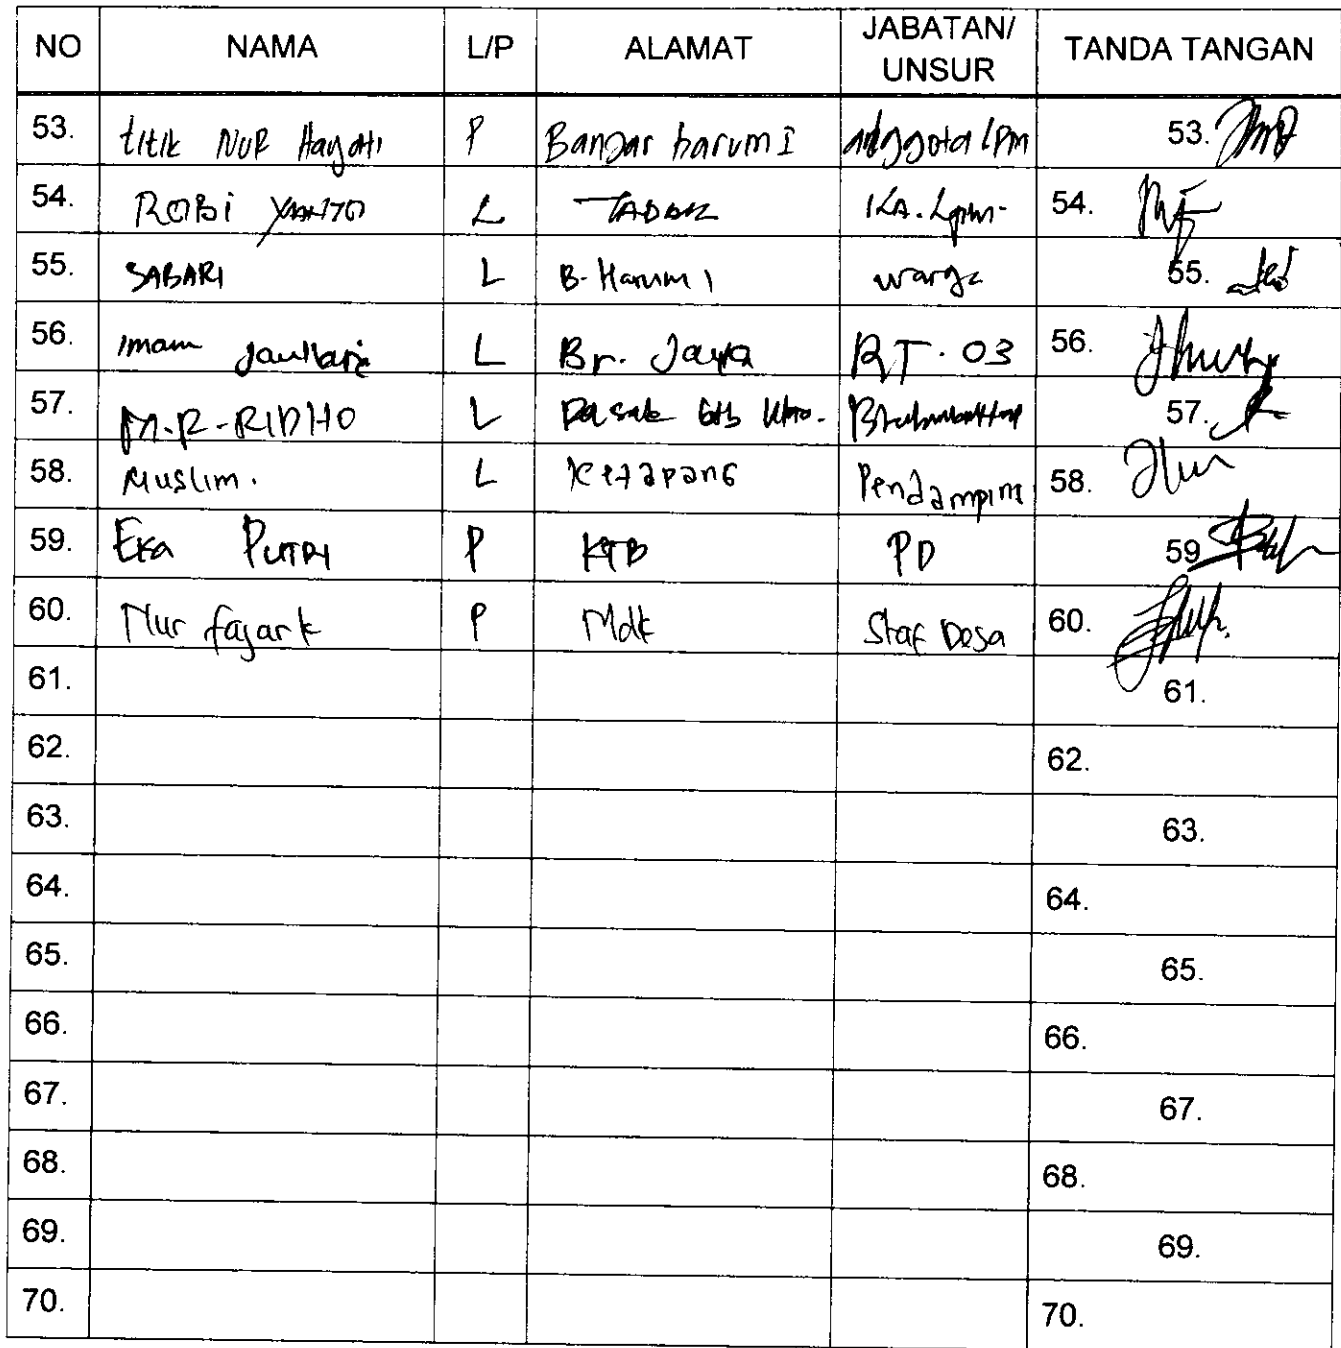 NO NAMA L/P ALAMAT JABATAN/ UNSUR TANDA TANGAN
53. titik NUR Hayati P Banjar harum I anggota LPM 53.
54. ROBi YANTO L TABAK KA. Lpm. 54.
55. SABARI L B. Harum 1 warga 55.
56. imam Jauhari L Br. Jaya RT. 03 56.
57. M.R-RIDHO L 57.
58. Muslim. L Ketapang Pendamping 58.
59. EKa PUTRI P KTB PD 59
60. Nur fajar k P Mdk Staf Desa 60.
61. 61.
62. 62.
63. 63.
64. 64.
65. 65.
66. 66.
67. 67.
68. 68.
69. 69.
70. 70.